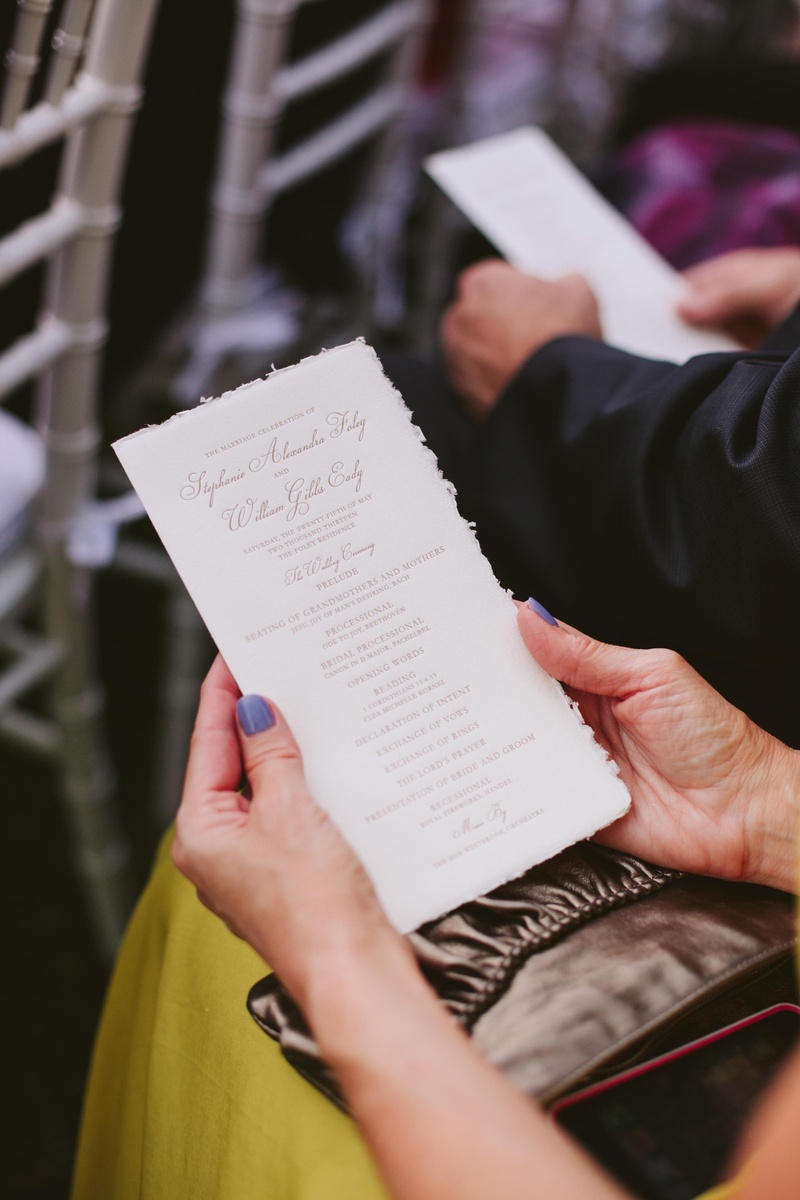 THE MARRIAGE CELEBRATION OF
Stephanie Alexandra Foley
AND
William Gibbs Eady
SATURDAY, THE TWENTY FIFTH OF MAY
TWO THOUSAND THIRTEEN
THE FOLEY RESIDENCE
The Wedding Ceremony
PRELUDE
SEATING OF GRANDMOTHERS AND MOTHERS
JESU, JOY OF MAN'S DESIRING, BACH
PROCESSIONAL
ODE TO JOY, BEETHOVEN
BRIDAL PROCESSIONAL
CANON IN D MAJOR, PACHELBEL
OPENING WORDS
READING
1 CORINTHIANS
KORNEL
DECLARATION OF INTENT
EXCHANGE OF VOWS
EXCHANGE OF RINGS
THE LORD'S PRAYER
PRESENTATION OF BRIDE AND GROOM
RECESSIONAL
ROYAL FIREWORKS, HANDEL
Music By
THE WESTBROOK ORCHESTRA